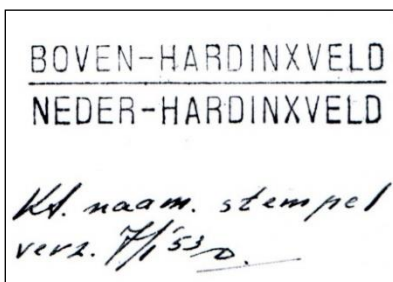 BOVEN-HARDINXVELD
NEDER-HARDINXVELD
Kt. naam. stempel
verz. 7/1 '53